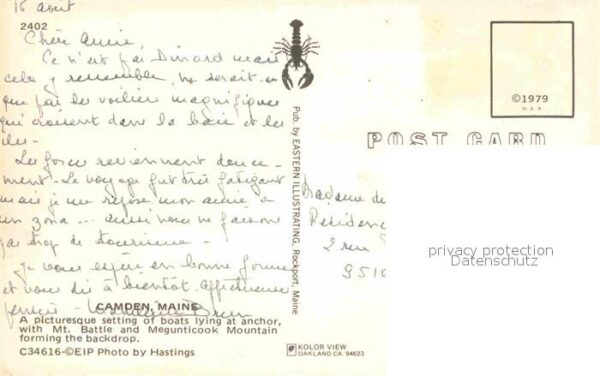 16 août
2402
Chère Annie,
Ce n'est pas Dinard mais
cela y ressemble, ne serait-ce
que par les voiliers magnifiques
qui croisent dans la baie et les
îles.
Les forces reviennent douce-
ment. Le voyage fut très fatigant
mais je me repose mon
aussi nous ne faisons
pas trop de tourisme.
Je vous espère en bonne forme
et vous dis à bientôt. Affectueuse
pensée -
CAMDEN, MAINE
A picturesque setting of boats lying at anchor,
with Mt. Battie and Megunticook Mountain
forming the backdrop.
C34616-©EIP Photo by Hastings
Pub. by EASTERN ILLUSTRATING, Rockport, Maine
©1979
U.S.A.
POST CARD
Madame
Résidence
2 rue
9510
privacy protection
Datenschutz
KOLOR VIEW
OAKLAND CA. 94623